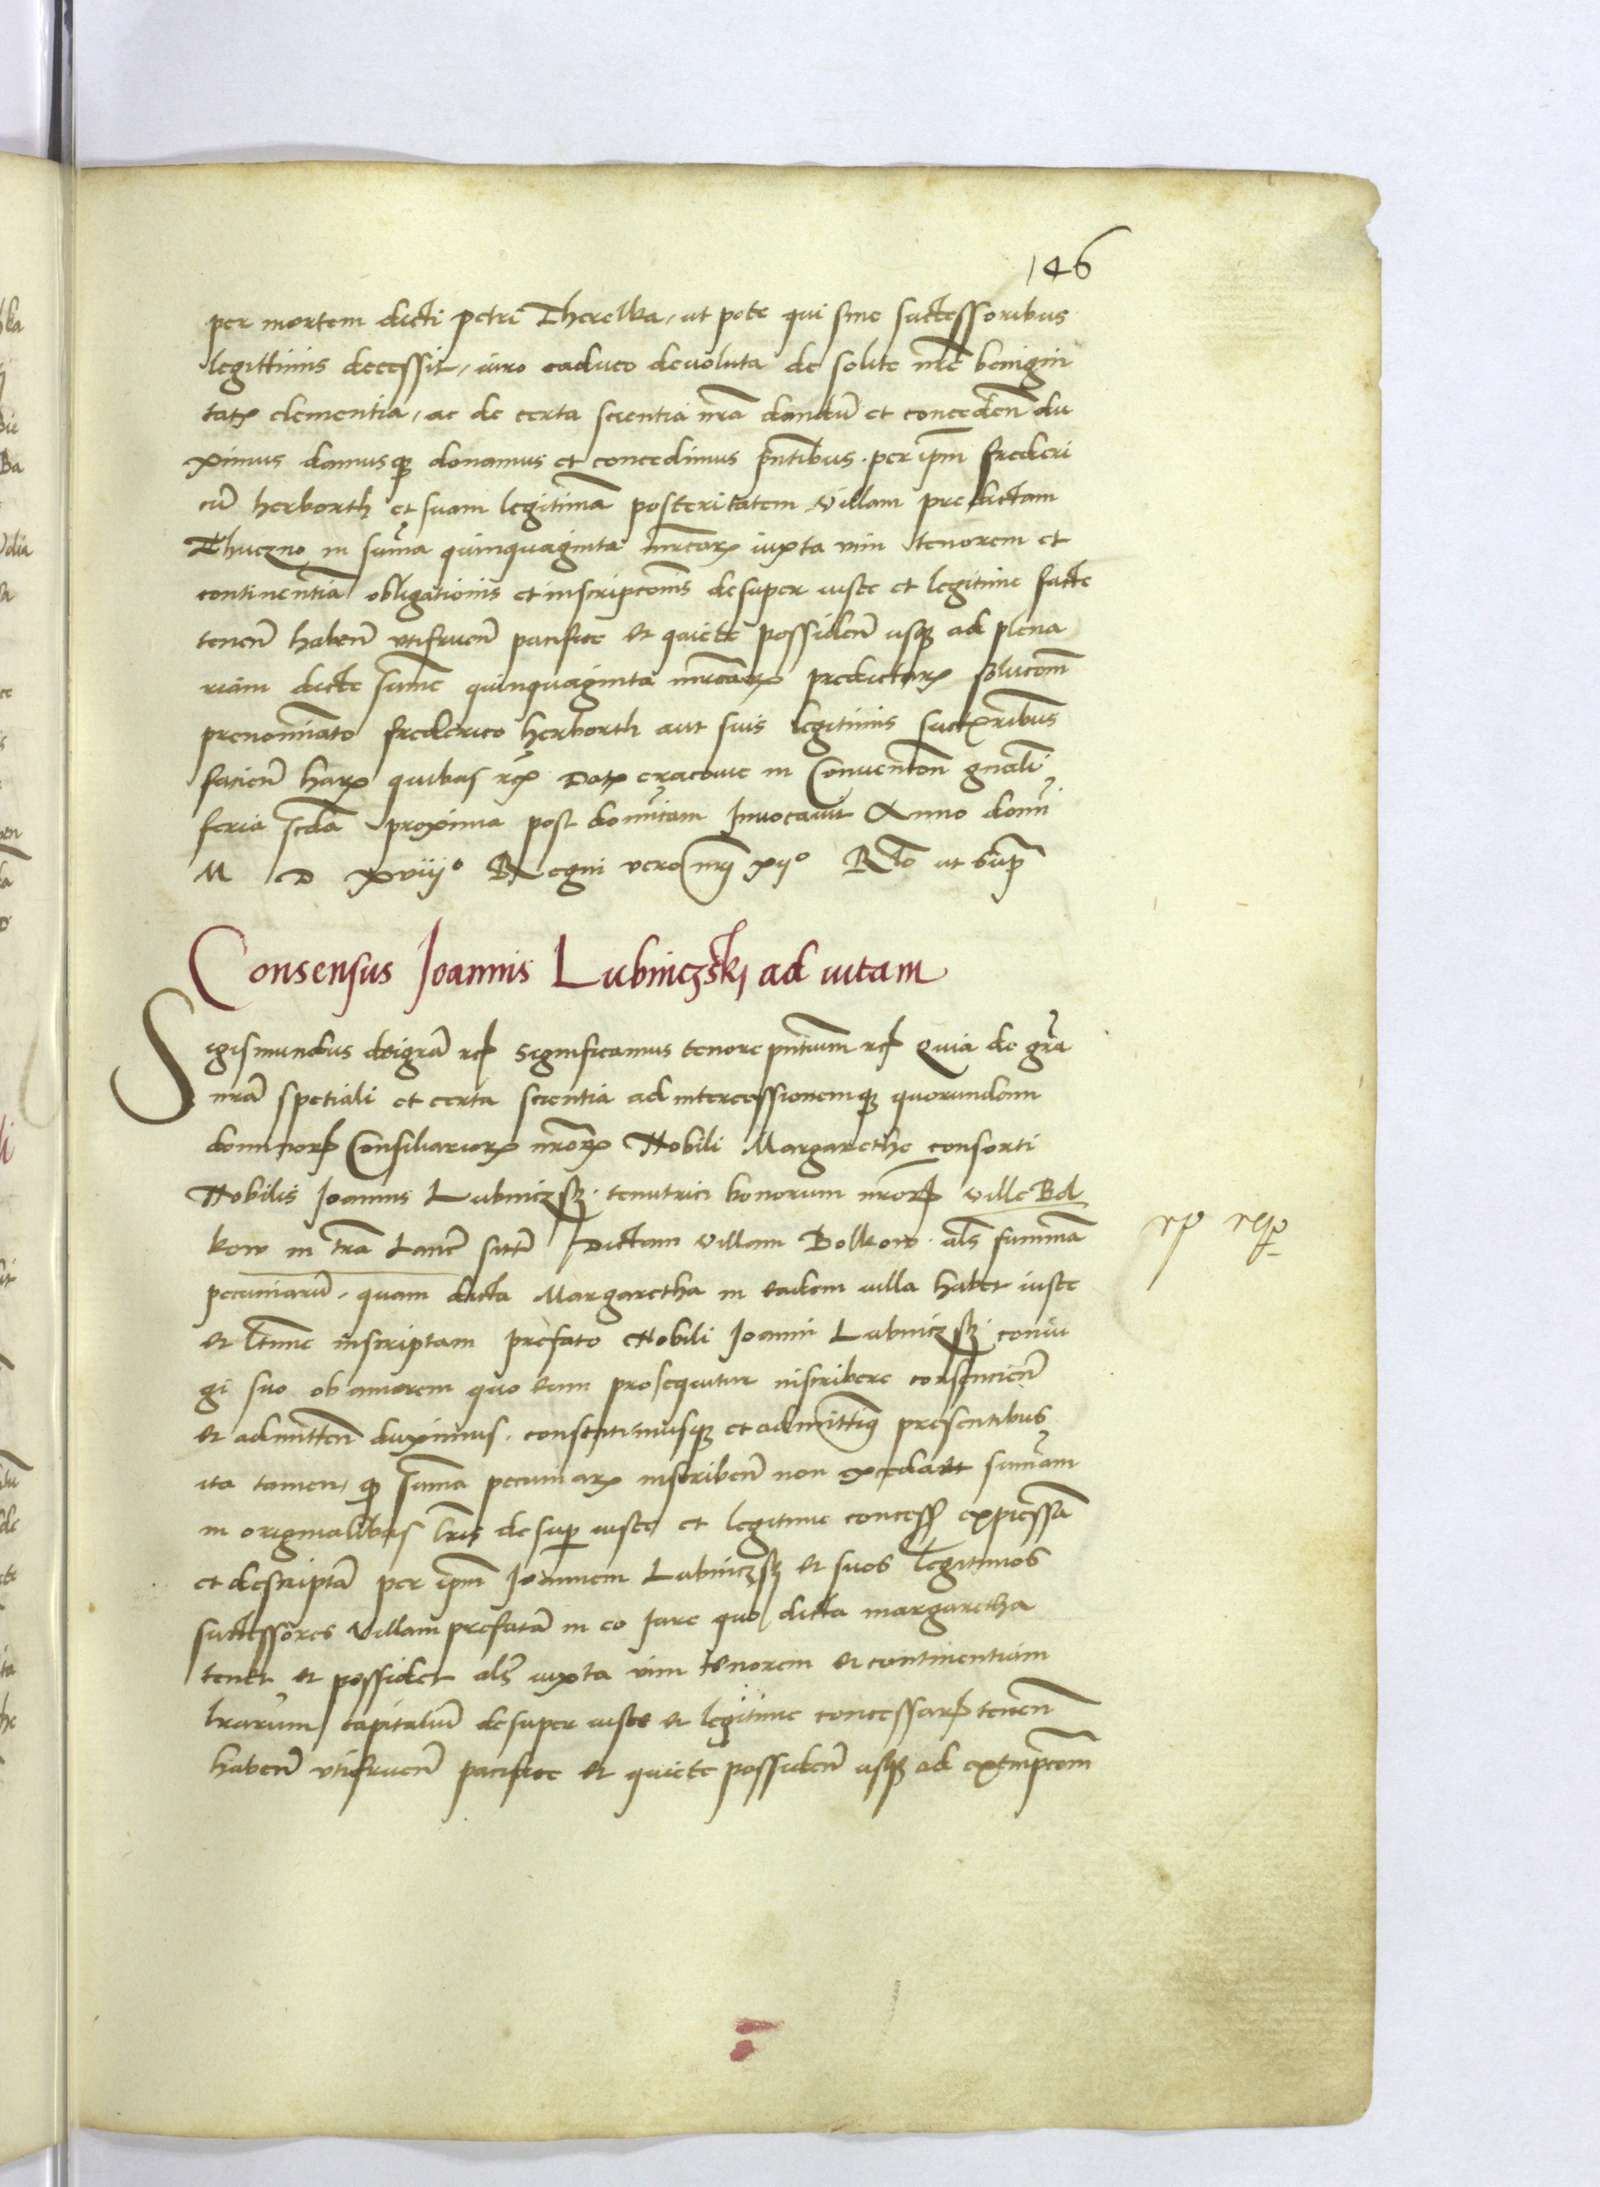 146
per mortem dicti Petri Therelka, ut pote qui sine successoribus
legittimis decessit, iure caduco devoluta de solite nre benigni
tatis clementia, ac de certa scientia nra dandu et conceden du
ximus damusq donamus et concedimus pntibus per ipm Frederi
cu herborth et suam legitima posteritatem villam predictam
Thuczno in suma quinquaginta mrcar iuxta vim tenorem et
continentia obligationis et inscripconis desuper iuste et legitime facte
tenen haben utifruen pacifice et quiete possiden usq ad plena
riam dicte sume quinquaginta mrcar predictar solucom
prenominato Frederico herborth aut suis legitimis successoribus
facien har quibus rc Dat cracovie in Convencon gnali
feria scda proxima post dominicam Invocavit Anno domi
M D xviii° Regni vero nri xii° Rlo ut supra
Consensus Joannis Lubniczski ad vitam
Sigismundus dei gra rc Significamus tenore pntium rc Quia de gra
nra speciali et certa scientia ad intercessionemq quorundam
dominor Consiliarior nror Nobili Margarethe consorti
Nobilis Joannis Lubniczsky tenutrici bonorum nror ville Bol
kow in tra Lanc sitte Dictam villam Bolkow als summa
pecuniaru, quam dicta Margaretha in eadem villa habet iuste
et ltime inscriptam prefato Nobili Joanni Lubniczsky coniu
gi suo ob amorem quo eum prosequitur inscribere consencien
et admitten duximus consentimusq et admittimus presentibus
ita tamen q suma pecuniar inscriben non excedat sumam
in originalibus lris desup iuste et legitime concess expressa
et descripta per ipm Joannem Lubniczsky et suos legitimos
successores villam prefata in eo iure quo dicta margaretha
tenet et possidet als iuxta vim tenorem et continentiam
lrarum capitaliu desuper iuste et legitime concessar tenen
haben utifruen pacifice et quiete possiden usq ad exempcom